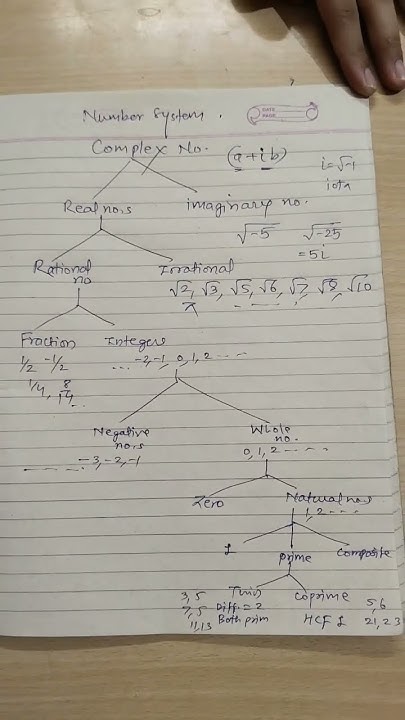 Number System.
DATE
PAGE
Complex No.
(a+ib)
i=√-1
iota
Real no.s
imaginary no.
√-5 √-25
=5i
Rational no
Irrational
√2, √3, √5, √6, √7, √8, √10
π
Fraction
Integers
1/2 -1/2
... -2, -1, 0, 1, 2 ----
1/4, 8/14 ...
Negative no.s
Whole no.
---- -3, -2, -1
0, 1, 2 ----
Zero
Natural no.s
1, 2 ---
1
Prime
Composite
Twin
Coprime
3, 5
Diff = 2
5, 6
7, 5
Both prim
HCF 1
21, 23
11, 13